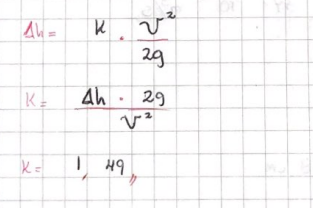 Δh = K · v²/2g
K = Δh · 2g / v²
K = 1, 49,,